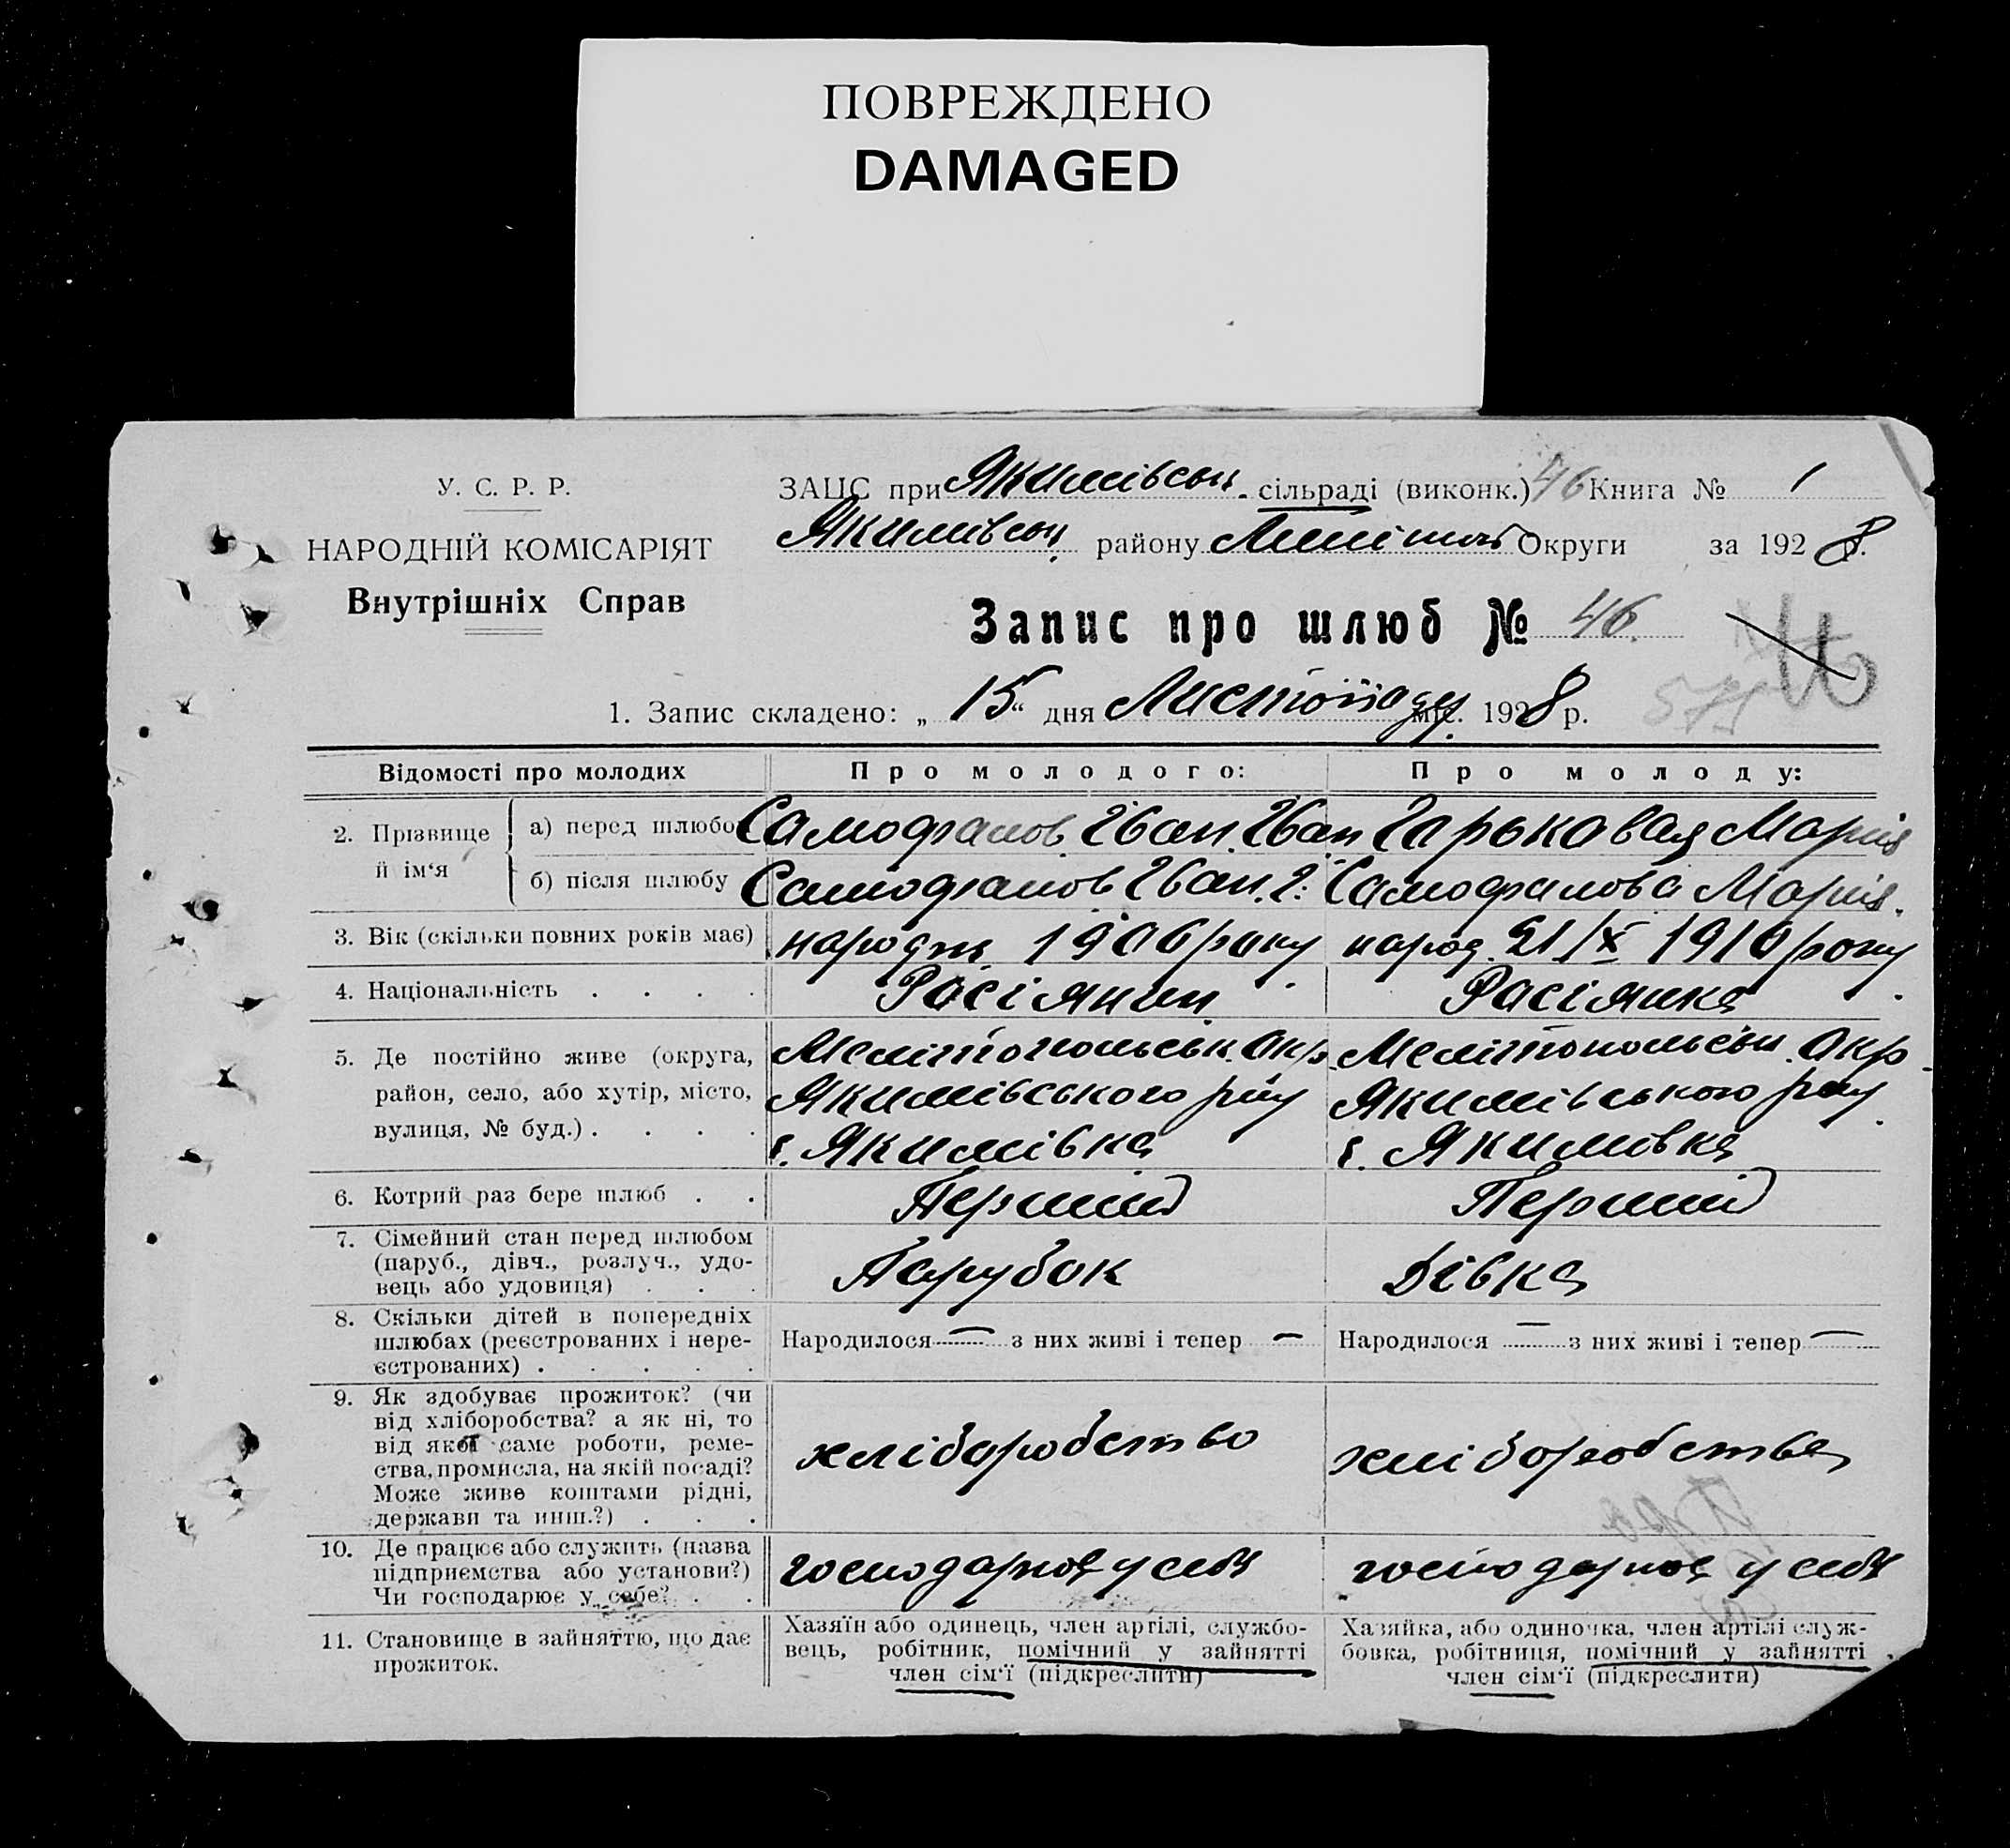 ПОВРЕЖДЕНО
DAMAGED
У. С. Р. Р.
НАРОДНІЙ КОМІСАРІЯТ
Внутрішніх Справ
ЗАЦС при Якимівськ. сільраді (виконк.) 46 Книга № 1
Якимівськ. району Округи за 1928 р.
Запис про шлюб № 46.
1. Запис складено: „ 15 “ дня Листопаду міс. 1928 р.
Відомості про молодих Про молодого: Про молоду:
2. Прізвище й ім‘я
а) перед шлюбо Самофалов Іван. Іван Гарьковая Марія
б) після шлюбу Самофалов Іван. І. Самофалова Марія.
3. Вік (скільки повних років має) народж. 1906 року народ. 21/X 1910 року
4. Національність . . . . Росіянин Росіянка
5. Де постійно живе (округа, Мелітопольськ. Окр. Мелітопольськ. Окр.
район, село, або хутір, місто, Якимівського р-ну Якимівського р-ну
вулиця, № буд.) . . . . с. Якимівка с. Якимовка
6. Котрий раз бере шлюб . . Перший Перший
7. Сімейний стан перед шлюбом
(паруб., дівч., розлуч., удо- Парубок Дівка
вець або удовиця) . . .
8. Скільки дітей в попередніх
шлюбах (реєстрованих і нере- Народилося — з них живі і тепер — Народилося — з них живі і тепер —
єстрованих) . . . . .
9. Як здобуває прожиток? (чи
від хліборобства? а як ні, то
від якої саме роботи, реме- хліборобство хліборобства
ства, промисла, на якій посаді?
Може живе коштами рідні,
держави та инш.?) . . .
10. Де працює або служить (назва
підприємства або установи?) господарює у себя господарює у себя
Чи господарює у себе? . .
11. Становище в зайняттю, що дає
прожиток.
Хазяїн або одинець, член артілі, службо-
вець, робітник, помічний у зайнятті
член сім‘ї (підкреслити)
Хазяйка, або одиночка, член артілі служ-
бовка, робітниця, помічний у зайнятті
член сім‘ї (підкреслити)